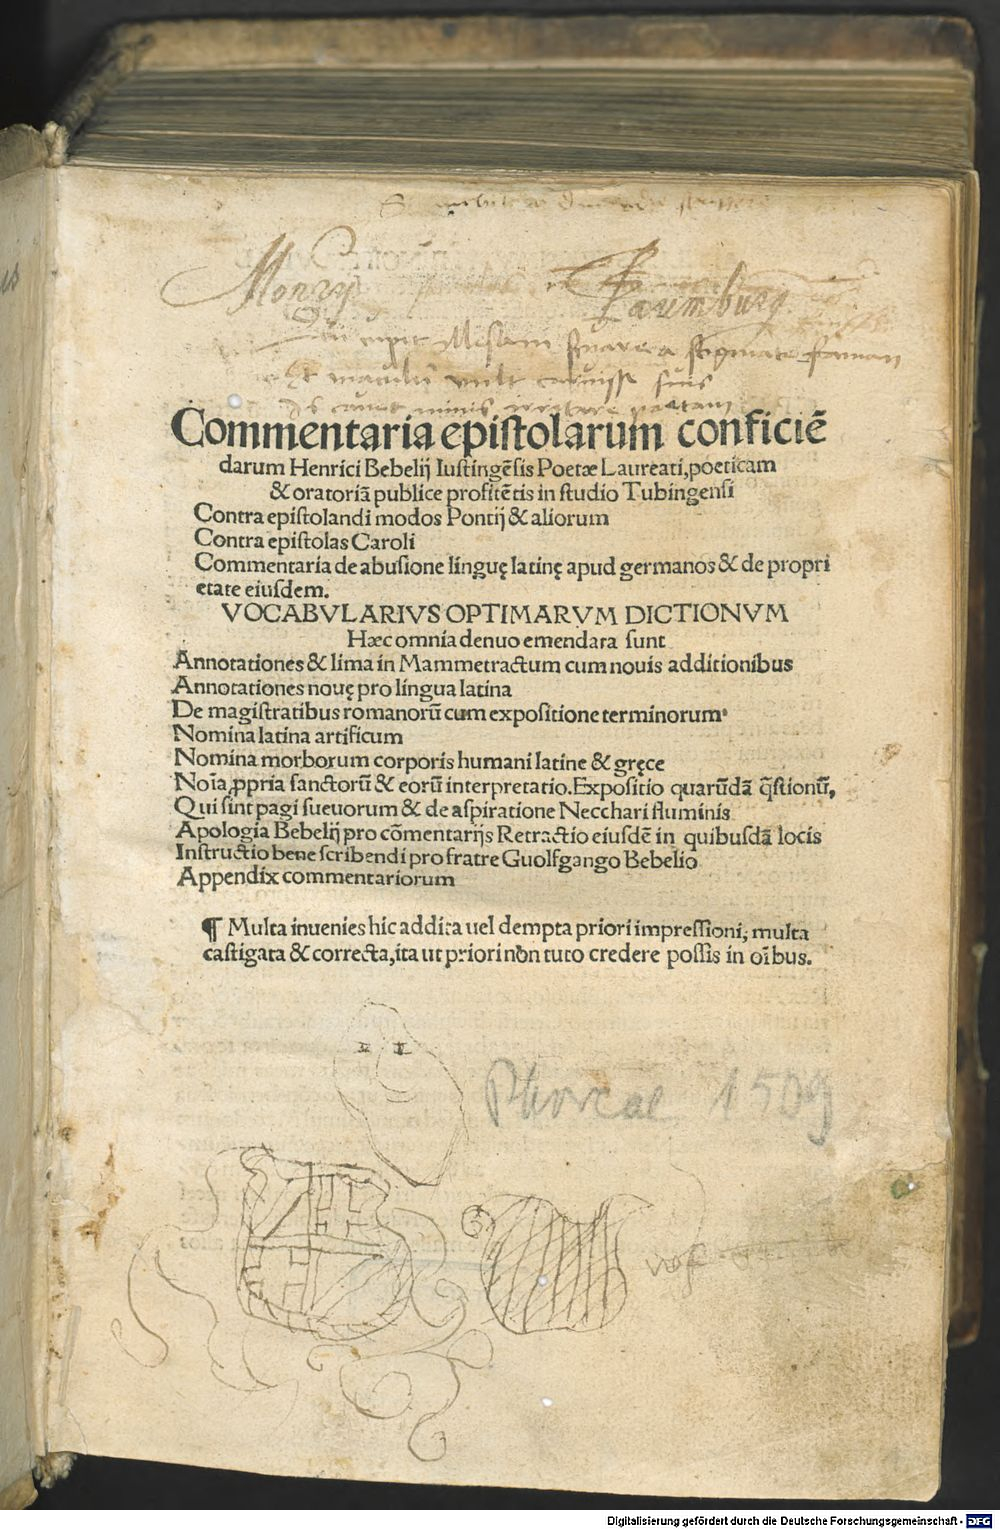 Monry Paumburg.
Commentaria epistolarum conficiē
darum Henrici Bebelij Iustingēsis Poetæ Laureati, poeticam
& oratoriā publice profitētis in studio Tubingensi
Contra epistolandi modos Pontij & aliorum
Contra epistolas Caroli
Commentaria de abusione linguę latinę apud germanos & de propri
etate eiusdem.
VOCABVLARIVS OPTIMARVM DICTIONVM
Hæc omnia denuo emendata sunt
Annotationes & lima in Mammetractum cum nouis additionibus
Annotationes nouę pro lingua latina
De magistratibus romanorū cum expositione terminorum.
Nomina latina artificum
Nomina morborum corporis humani latine & gręce
Noīa ꝓpria sanctorū & eorū interpretatio. Expositio quarūdā q̄stionū,
Qui sint pagi sueuorum & de aspiratione Necchari fluminis
Apologia Bebelij pro cōmentarijs Retractio eiusdē in quibusdā locis
Instructio bene scribendi pro fratre Guolfgango Bebelio
Appendix commentariorum
¶ Multa inuenies hic addita uel dempta priori impressioni, multa
castigata & correcta, ita ut priori non tuto credere possis in oībus.
Phorcae 1509
Digitalisierung gefördert durch die Deutsche Forschungsgemeinschaft - DFG